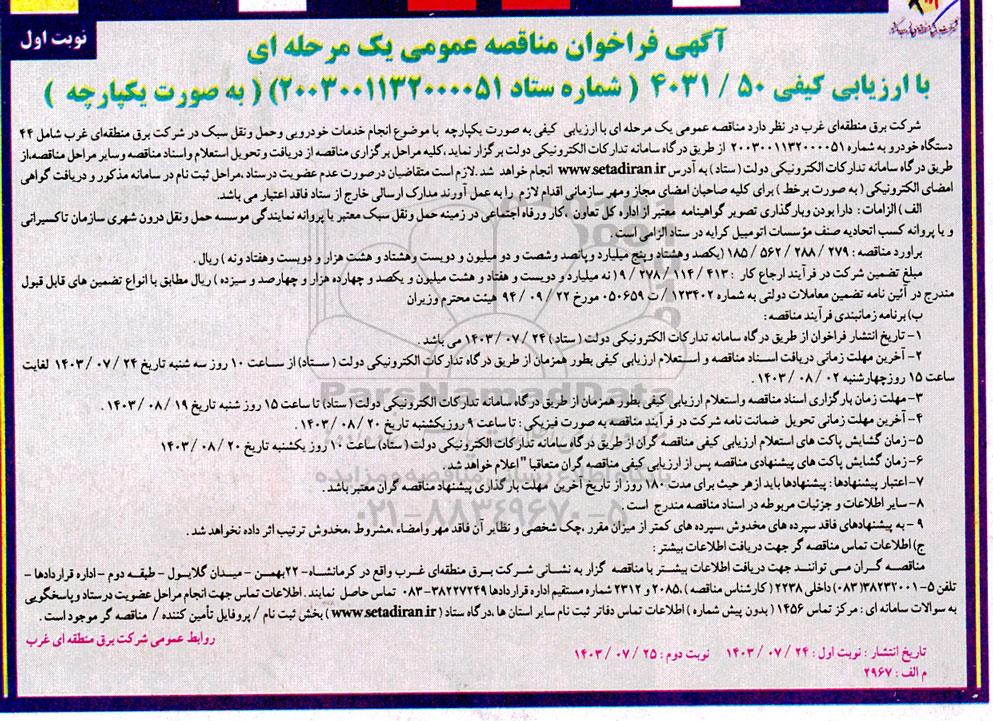 نوبت اول
آگهی فراخوان مناقصه عمومی یک مرحله ای
با ارزیابی کیفی ۵۰ / ۴۰۳۱ ( شماره ستاد ۲۰۰۳۰۰۱۱۳۲۰۰۰۰۵۱) ( به صورت یکپارچه )
شرکت برق منطقه‌ای غرب در نظر دارد مناقصه عمومی یک مرحله ای با ارزیابی کیفی به صورت یکپارچه با موضوع انجام خدمات خودرویی وحمل ونقل سبک در شرکت برق منطقه‌ای غرب شامل ۴۴
دستگاه خودرو به شماره ۲۰۰۳۰۰۱۱۳۲۰۰۰۰۵۱ از طریق درگاه سامانه تدارکات الکترونیکی دولت برگزار نماید ،کلیه مراحل برگزاری مناقصه از دریافت وتحویل استعلام واسناد مناقصه وسایر مراحل مناقصه،از
طریق درگاه سامانه تدارکات الکترونیکی دولت ( ستاد ) به آدرس www.setadiran.ir انجام خواهد شد .لازم است متقاضیان درصورت عدم عضویت درستاد ،مراحل ثبت نام در سامانه مذکور و دریافت گواهی
امضای الکترونیکی ( به صورت برخط ) برای کلیه صاحبان امضای مجاز ومهر سازمانی اقدام لازم را به عمل آورند مدارک ارسالی خارج از ستاد فاقد اعتبار می باشد.
الف ) الزامات : دارا بودن وبارگذاری تصویر گواهینامه معتبر از اداره کل تعاون ،کار ورفاه اجتماعی در زمینه حمل ونقل سبک معتبر یا پروانه نمایندگی موسسه حمل ونقل درون شهری سازمان تاکسیرانی
و یا پروانه کسب اتحادیه صنف مؤسسات اتومبیل کرایه در ستاد الزامی است .
برآورد مناقصه : ۲۷۹ / ۲۸۸ / ۵۶۲ / ۱۸۵ (یکصد وهشتاد و پنج میلیارد و پانصد وشصت و دو میلیون و دویست وهشتاد و هشت هزار و دویست وهفتاد ونه ) ریال .
مبلغ تضمین شرکت در فرآیند ارجاع کار : ۴۱۳ / ۱۱۴ / ۲۷۸ / ۹ ( نه میلیارد و دویست و هفتاد و هشت میلیون و یکصد و چهارده هزار و چهارصد و سیزده ) ریال مطابق با انواع تضمین های قابل قبول
مندرج در آئین نامه تضمین معاملات دولتی به شماره ۱۲۳۴۰۲ / ت ۵۰۶۵۹ه مورخ ۲۲ / ۰۹ / ۹۴ هیئت محترم وزیران
ب) برنامه زمانبندی فرآیند مناقصه:
۱- تاریخ انتشار فراخوان از طریق درگاه سامانه تدارکات الکترونیکی دولت ( ستاد ) ۲۴ / ۰۷ / ۱۴۰۳ می باشد .
۲- آخرین مهلت زمانی دریافت اسناد مناقصه و استعلام ارزیابی کیفی بطور همزمان از طریق درگاه تدارکات الکترونیکی دولت ( ستاد) از ساعت ۱۰ روز سه شنبه تاریخ ۲۴ / ۰۷ / ۱۴۰۳ لغایت
ساعت ۱۵ روزچهارشنبه ۰۲ / ۰۸ / ۱۴۰۳ .
۳- مهلت زمان بارگزاری اسناد مناقصه واستعلام ارزیابی کیفی بطور همزمان از طریق درگاه سامانه تدارکات الکترونیکی دولت ( ستاد) تا ساعت ۱۵ روز شنبه تاریخ ۱۹ / ۰۸ / ۱۴۰۳.
۴- آخرین مهلت زمانی تحویل ضمانت نامه شرکت در فرآیند مناقصه به صورت فیزیکی : تا ساعت ۹ روزیکشنبه تاریخ ۲۰ / ۰۸ / ۱۴۰۳ .
۵- زمان گشایش پاکت های استعلام ارزیابی کیفی مناقصه گران از طریق درگاه سامانه تدارکات الکترونیکی دولت ( ستاد) ساعت ۱۰ روز یکشنبه تاریخ ۲۰ / ۰۸ / ۱۴۰۳
۶- زمان گشایش پاکت های پیشنهادی مناقصه پس از ارزیابی کیفی مناقصه گران متعاقبا" اعلام خواهد شد.
۷- اعتبار پیشنهادها : پیشنهادها باید از هر حیث برای مدت ۱۸۰ روز از تاریخ آخرین مهلت بارگذاری پیشنهاد مناقصه گران معتبر باشد .
۸- سایر اطلاعات و جزئیات مربوطه در اسناد مناقصه مندرج است .
۹ - به پیشنهادهای فاقد سپرده های مخدوش ،سپرده های کمتر از میزان مقرر ،چک شخصی و نظایر آن فاقد مهر وامضاء ،مشروط ،مخدوش ترتیب اثر داده نخواهد شد .
ج) اطلاعات تماس مناقصه گر جهت دریافت اطلاعات بیشتر :
مناقصه گران می توانند جهت دریافت اطلاعات بیشتر با مناقصه گزار به نشانی شرکت برق منطقه‌ای غرب واقع در کرمانشاه- ۲۲بهمن - میدان گلایول - طبقه دوم - اداره قراردادها -
تلفن ۵-۳۸۲۳۲۰۰۱(۰۸۳) داخلی ۲۲۳۸ ( کارشناس مناقصه )،۲۰۸۵ و ۲۳۱۲ شماره مستقیم اداره قراردادها ۳۸۲۲۷۲۴۹-۰۸۳ تماس حاصل نمایند .اطلاعات تماس جهت انجام مراحل عضویت درستاد و پاسخگویی
به سوالات سامانه ای : مرکز تماس ۱۴۵۶ ( بدون پیش شماره ) اطلاعات تماس دفاتر ثبت نام سایر استان ها ،درگاه ستاد ( www.setadiran.ir ) بخش ثبت نام / پروفایل تأمین کننده / مناقصه گر موجود است .
روابط عمومی شرکت برق منطقه ای غرب
تاریخ انتشار : نوبت اول : ۲۴ / ۰۷ / ۱۴۰۳ نوبت دوم : ۲۵ / ۰۷ / ۱۴۰۳
م الف : ۲۹۶۷
ParsNamadData
۰۲۱-۸۸۳۴۹۶۷۰-۵